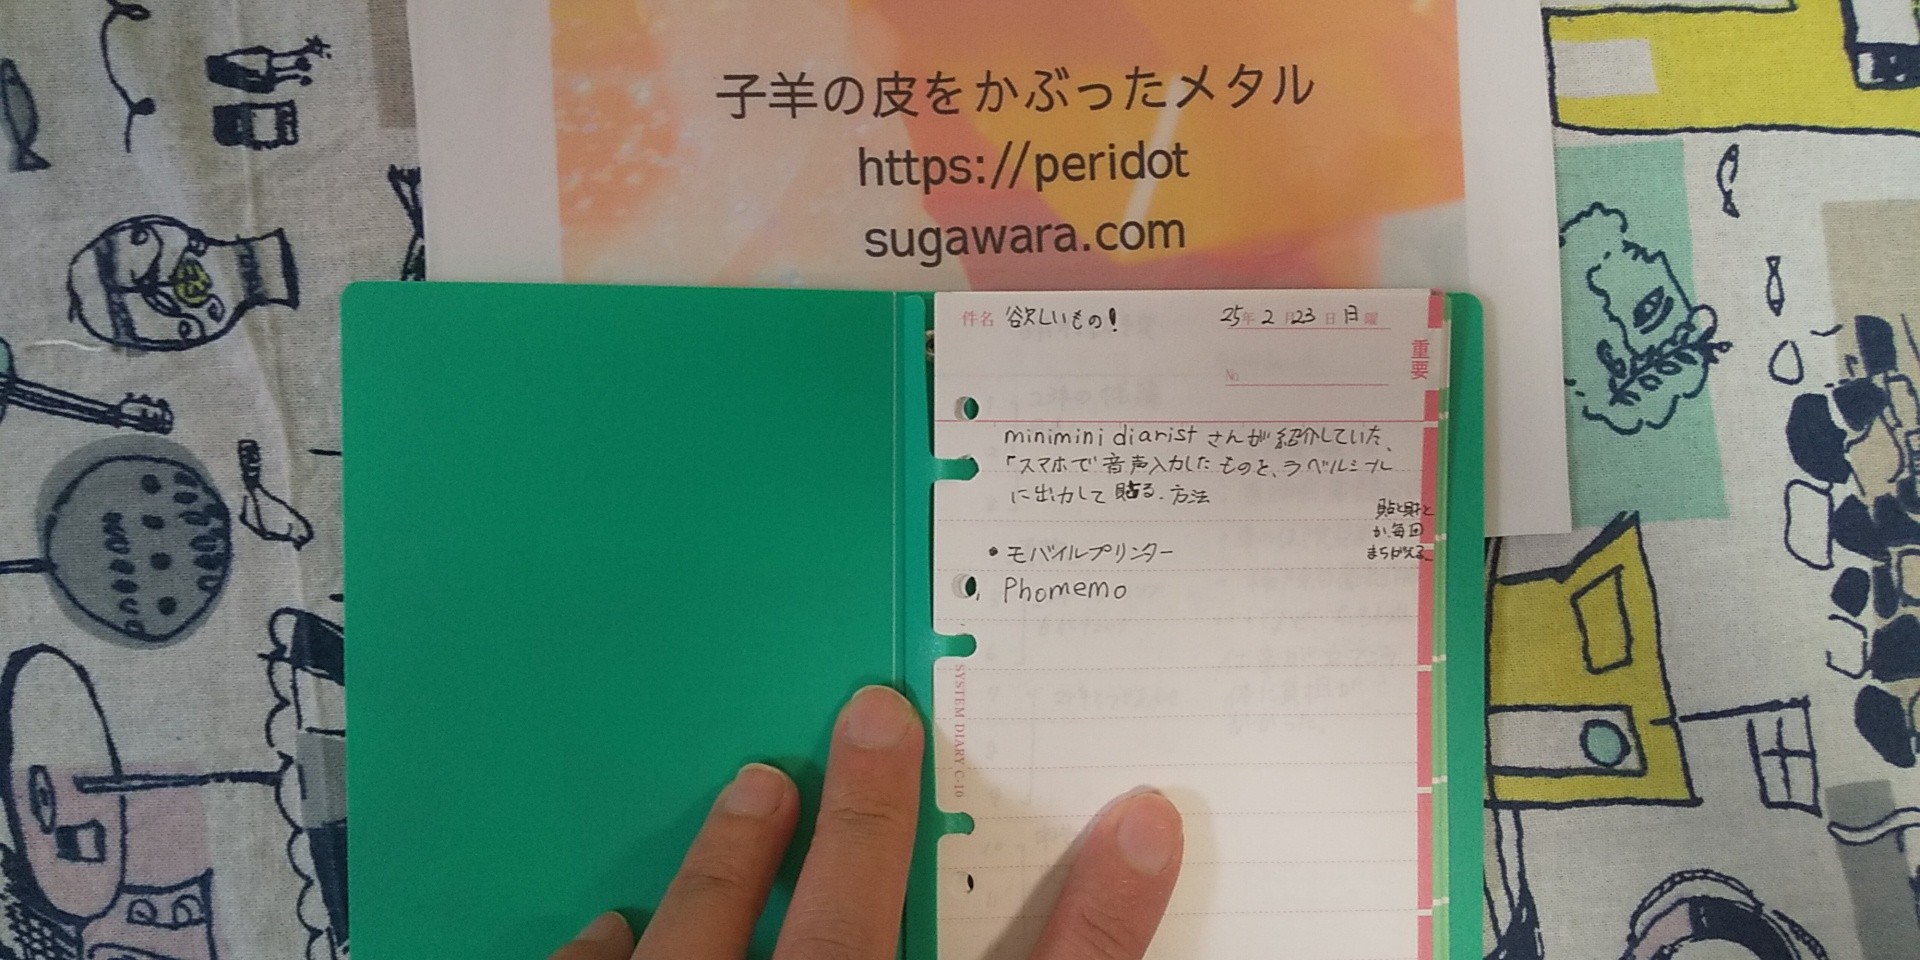 子羊の皮をかぶったメタル
https://peridot
sugawara.com
件名 欲しいもの!
25年 2月23日 日曜
No.
重要
minimini diarist さんが紹介していた、
「スマホで音声入力したものを、ラベルシール
に出力して貼る。方法
貼と財と
か毎回
まちがえる。
・モバイルプリンター
Phomemo
SYSTEM DIARY C-10